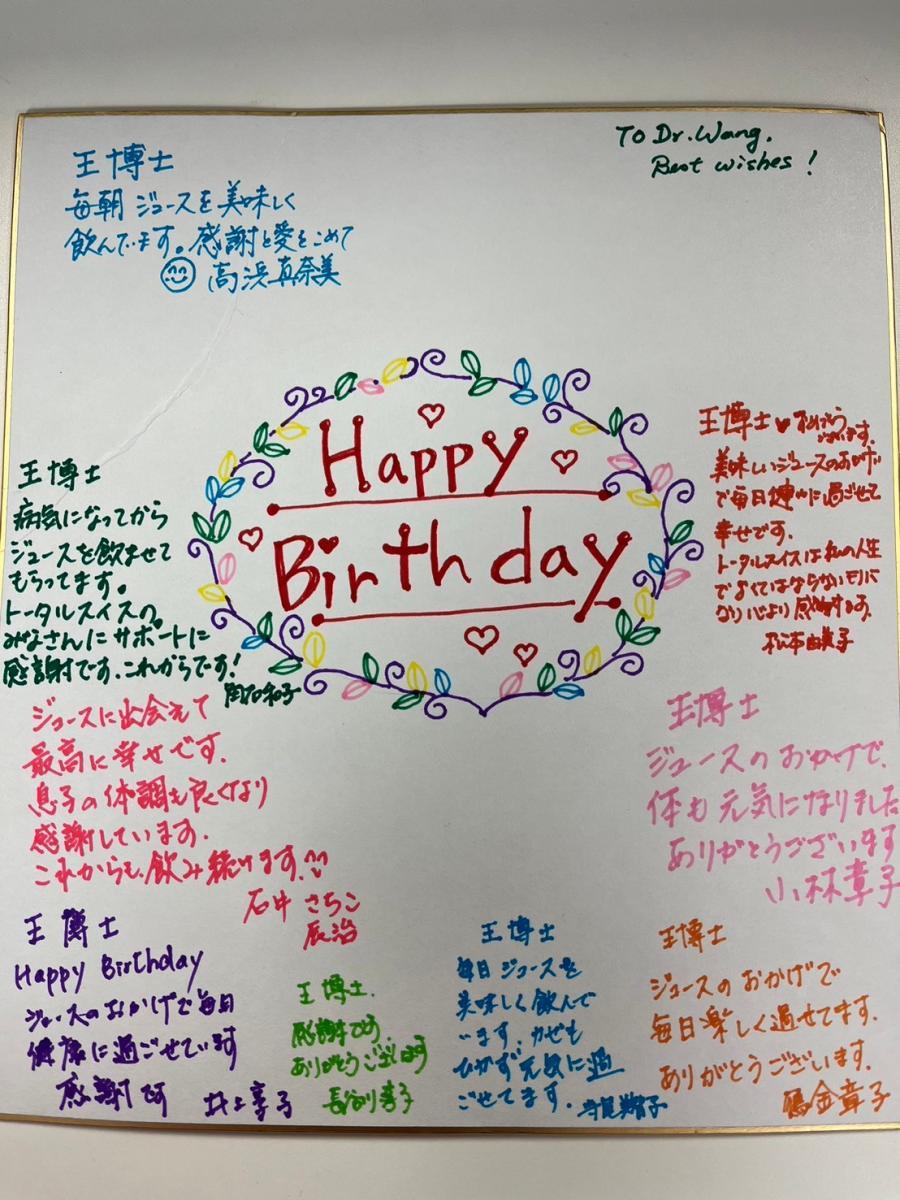 To Dr. Wang.
Best wishes!
王博士
毎朝 ジュースを美味しく
飲んでます。感謝と愛をこめて
高浜真奈美
Happy
Birthday
王博士
病気になってから
ジュースを飲ませて
もらってます。
トータルスイスの
みなさんにサポートに
感謝です。これからです!
和子
王博士♥
ございます。
美味しいジュースのおかげ
で毎日 に過ごせて
幸せです。
トータルスイスは私の人生
で なくてはならないモノ
心より感謝します。
松本由美子
ジュースに出会えて
最高に幸せです。
息子の体調も良くなり
感謝しています。
これからも飲み続けます。
石中 さちこ
辰治
王博士
ジュースのおかげで、
体も元気になりました
ありがとうございます
小林章子
王博士
Happy Birthday
ジュースのおかげで毎日
健康に過ごせています
感謝です
井上享子
王博士.
感謝です
ありがとうございます
長谷川孝子
王博士
毎日ジュースを
美味しく飲んで
います。カゼも
ひかず元気に過
ごせてます。
王博士
ジュースのおかげで
毎日楽しく過せてます。
ありがとうございます。
金章子